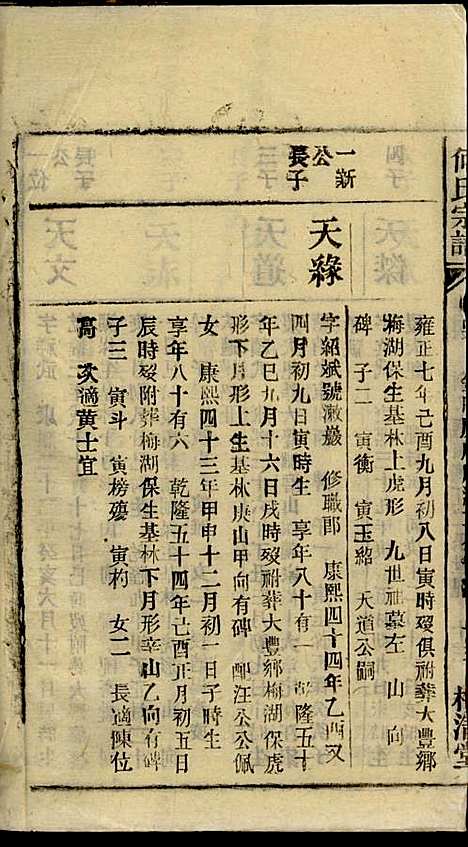 何氏宗譜
雍正七年己酉九月初八日寅時歿俱祔葬大豐鄉
梅湖保生基林上虎形 九世祖墓左 山 向
碑 子二 寅衡 寅玉紹 天道公嗣
一新
公
長子
天緣
字紹斌號漱巖 修職郎 康熙四十四年乙酉又
四月初九日寅時生 享年八十有一 乾隆五十
年乙巳九月十六日戌時歿祔葬大豐鄉梅湖保虎
形下月形上生基林庚山甲向有碑 配汪公公佩
女 康熙四十三年甲申十二月初一日子時生
享年八十有六 乾隆五十四年己酉正月初五日
辰時歿附葬梅湖保生基林下月形辛山乙向有碑
子三 寅斗 寅榜殤 寅杓 女二 長適陳位
高 次適黃士宜